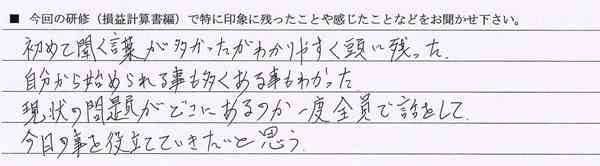 ■ 今回の研修（損益計算書編）で特に印象に残ったことや感じたことなどをお聞かせ下さい。
初めて聞く言葉が多かったがわかりやすく頭に残った.
自分から始められる事も多くある事もわかった
現状の問題がどこにあるのか一度全員で話をして.
今日の事を役立てていきたいと思う.